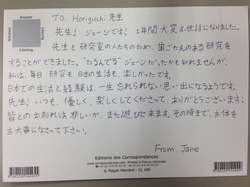 Answer
Solution
Listening
TO. Horiguchi 先生
先生! ジェーンです! 1年間大変お世話になりました。
先生と研究室の人たちのため、皆ごた人のまる研究を
することができました。"たるんでる"ジェーンだったかも知れませんが、
私は、毎日、研究も日本の生活も、楽しかったです。
日本での生活と経験は一生忘れられない思い出になるようです。
先生! いつも、優しく、楽しくしてくださって ありがとうございます!
皆とのお別れは悲しいが、また遊びに来ます。その時まで、お体を
お大事になさって下さい。
From. Jane
Editions des Correspondances